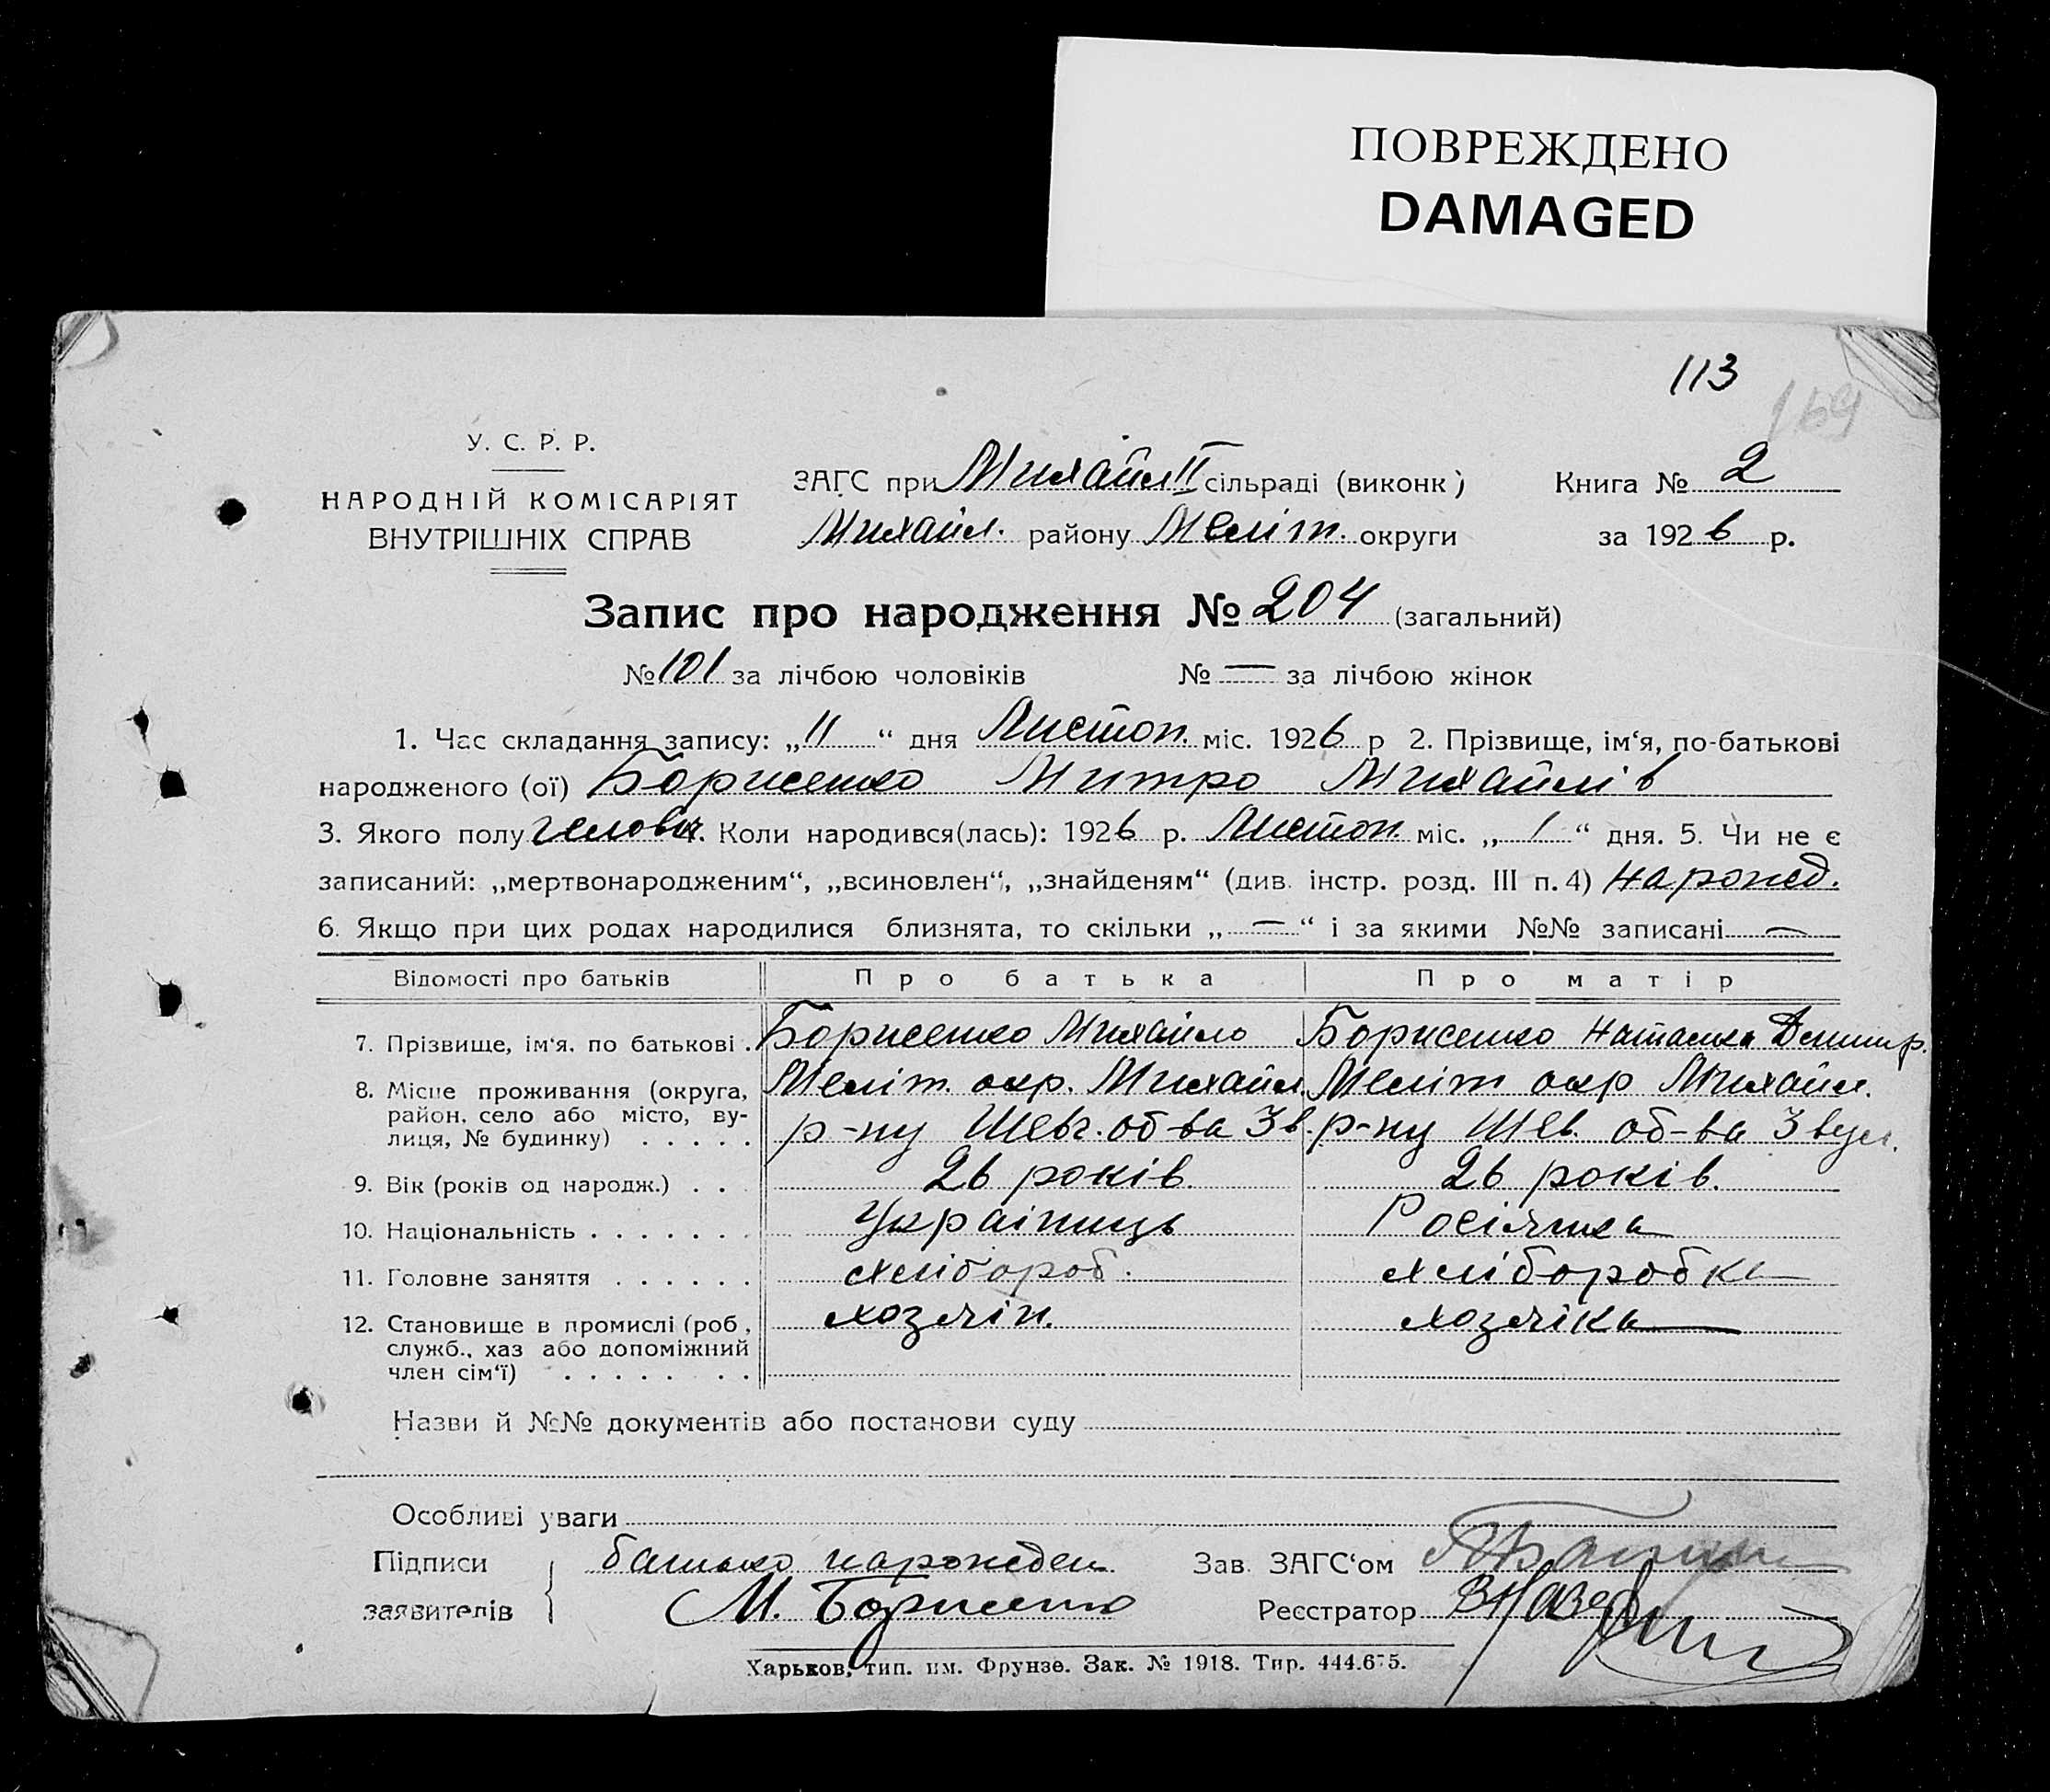 ПОВРЕЖДЕНО
DAMAGED
113
169
У. С. Р. Р.
НАРОДНІЙ КОМІСАРІЯТ
ВНУТРІШНІХ СПРАВ
ЗАГС при Михайл II сільраді (виконк)
Михайл. району Меліт. округи
Книга № 2
за 1926 р.
Запис про народження № 204 (загальний)
№ 101 за лічбою чоловіків № — за лічбою жінок
1. Час складання запису: „11“ дня Листоп. міс. 1926 р 2. Прізвище, ім‘я, по-батькові
народженого (ої) Борисенко Митро Михайлів
3. Якого полу челович. Коли народився(лась): 1926 р. Листоп. міс. „1“ дня. 5. Чи не є
записаний: „мертвонародженим“, „всиновлен“, „знайденям“ (див. інстр. розд. III п. 4) нарожд.
6. Якщо при цих родах народилися близнята, то скільки „—“ і за якими №№ записані —
Відомості про батьків Про батька Про матір
7. Прізвище, ім‘я, по батькові . Борисенко Михайло Борисенко Наталка Демитр.
8. Місце проживання (округа, район, село або місто, вулиця, № будинку) . . . . .
Меліт. окр. Михайл. Меліт окр Михайл.
р-ну Шевч. об-ва Зв. р-ну Шев. об-ва З вул.
9. Вік (років од народж.) . . 26 років. 26 років.
10. Національність . . . . . . . Українець Росіянка
11. Головне заняття . . . . . . хлібороб. хліборобка
12. Становище в промислі (роб, служб., хаз або допоміжний член сім‘ї) . . . . . . .
хозяін. хозяіка
Назви й №№ документів або постанови суду
Особливі уваги
Підписи заявителів
батько нарожден
М. Борисенко
Зав. ЗАГС‘ом
Реєстратор
Харьков, тип. им. Фрунзе. Зак. № 1918. Тир. 444.675.